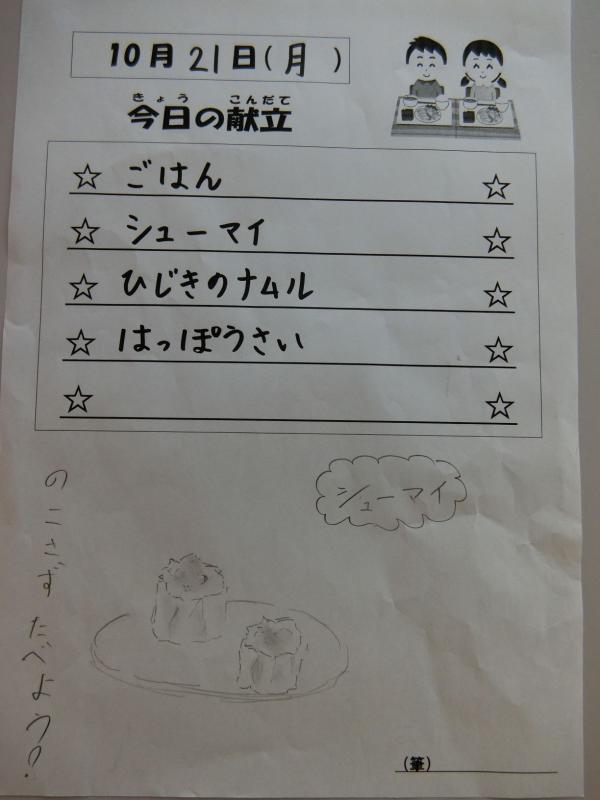 10月21日(月)
きょう こんだて
今日の献立
☆ ごはん ☆
☆ シューマイ ☆
☆ ひじきのナムル ☆
☆ はっぽうさい ☆
☆ ☆
シューマイ
のこさずたべよう!
(筆)